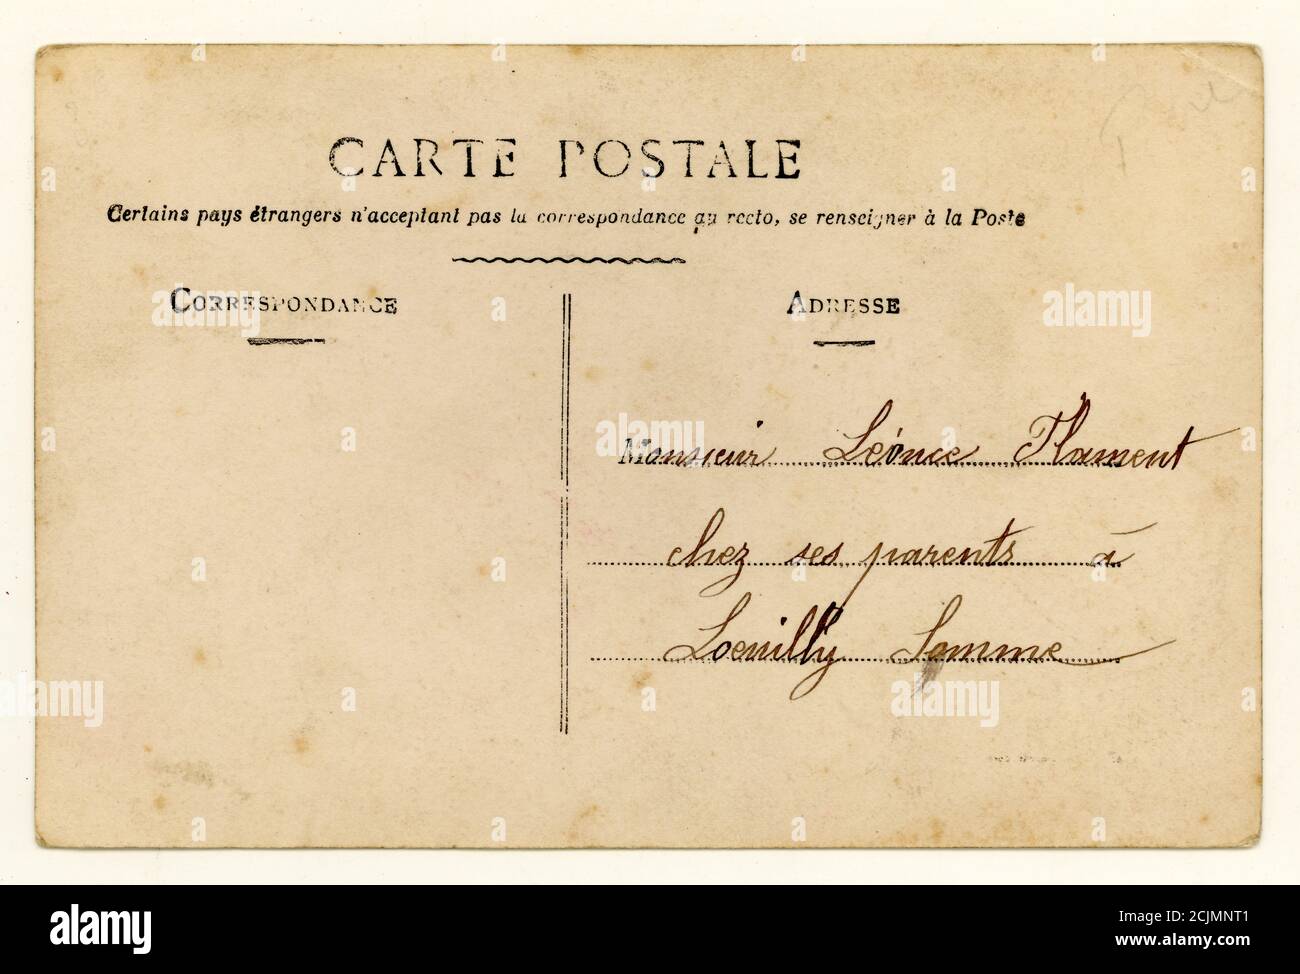 CARTE POSTALE
Certains pays étrangers n'acceptant pas la correspondance au recto, se renseigner à la Poste
CORRESPONDANCE
ADRESSE
Monsieur Léonce Flament
chez ses parents à
Loeuilly Somme
alamy
alamy
alamy
alamy
alamy
alamy
alamy
Image ID: 2CJMNT1
www.alamy.com